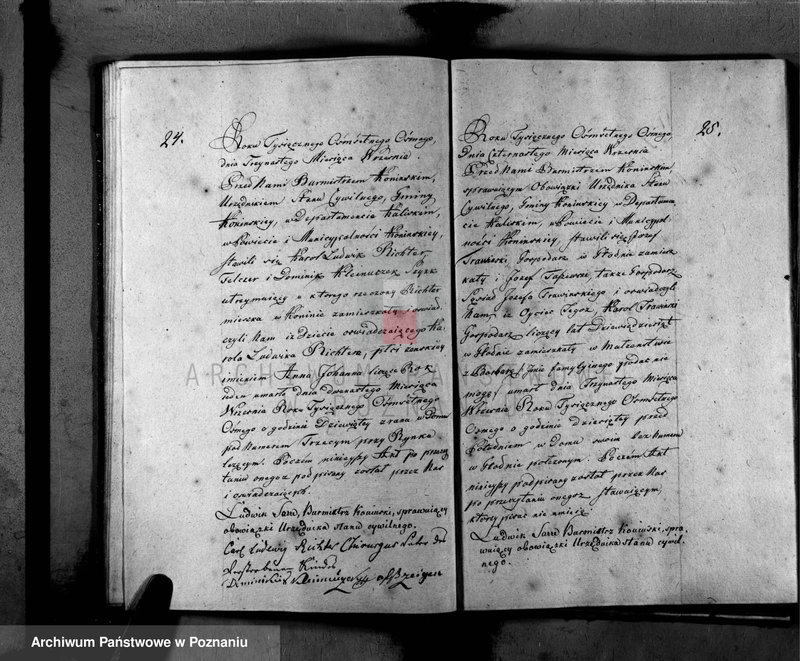 24.
Roku Tysięcznego Ośmsetnego Osmego,
dnia Trzynastego Miesiąca Września
Przed Nami Burmistrzem Konińskim,
Urzędnikiem Stanu Cywilnego, Gminy
Konińskiey, w Departamencie Kaliskim,
w Powiecie i Municypalności Konińskiey,
stawili się Karol Ludwik Richter
Felczer i Dominik Szynk
utrzymuiący u ktorego rzeczony Richter
mieszka w Koninie zamieszkały i oswiad-
czyli Nam iż Dziecie oswiadczaiącego Ka-
rola Ludwika Richtera, płci żenskiey
imieniem Anna Johanna licząca Rok
ieden umarło dnia dwunastego Miesiąca
Września Roku Tysięcznego Ośmsetnego
Osmego o godzinie Dziewiątey z rana w Domu
pod Numerem Trzecim przy Rynku
leżącym. Poczém ninieyszy Akt po przeczy-
taniu onegoż podpisany został przez Nas
i oswiadczaiących.
Ludwik Burmistrz Koninski, sprawuiący
obowiązki Urzędnika stanu cywilnego.
Carl Ludwig Richter Chirurgus Vater des
Verstorbenen Kindes
Dominikus
25.
Roku Tysięcznego Ośmsetnego Osmego,
Dnia Czternastego Miesiąca Września
Przed Nami Burmistrzem Konińskim
sprawuiącym Obowiązki Urzędnika Stanu
Cywilnego, Gminy Konińskiey w Departamen-
cie Kaliskim, w Powiecie i Municypal-
ności Konińskiey, stawili się Jozef
Trawinski Gospodarz w Głodnie zamiesz-
kały i Jozef także Gospodarz
Sąsiad Jozefa Trawinskiego i oswiadczyli
Nam iż Oyciec Tegoż, Karol Trawinski
Gospodarz liczący lat Dziewiędziesiąt
w Głodnie zamieszkały w Małżenstwie
z Barbarą
umarł dnia Trzynastego Miesiąca
Września Roku Tysięcznego Ośmsetnego
Osmego o godzinie dziesiątey przed
Południem w Domu swoim bez Numeru
w Głodnie położonym. Poczém Akt
ninieyszy podpisany został przez Nas
po przeczytaniu onegoż stawaiącym,
którzy pisać nie umieią.
Ludwik Burmistrz Koninski, spra-
wuiący obowiązki Urzędnika stanu cywil-
nego.
Archiwum Państwowe w Poznaniu